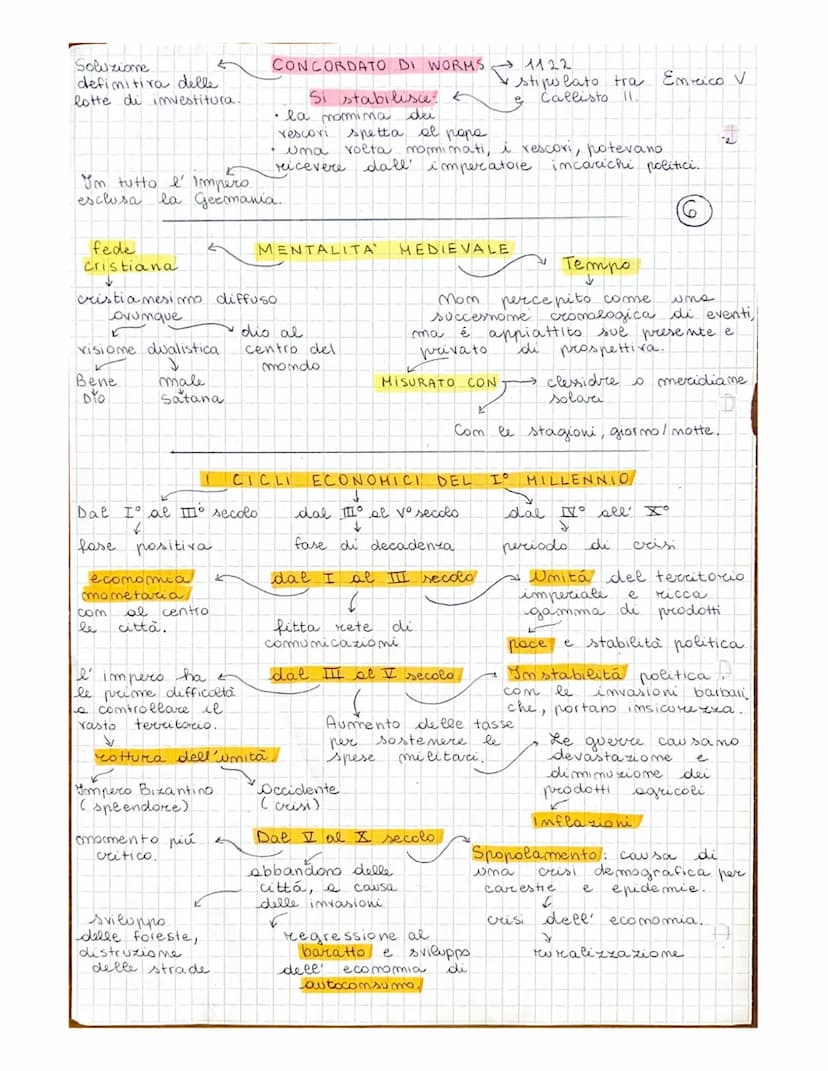 CONCORDATO DI WORMS → 1122
stipulato tra Enrico V
e Callisto II.
Soluzione
definitiva delle
lotte di investitura.
Si stabilisce:
• la nomina dei
vescovi spetta al papa
• una volta nominati, i vescovi, potevano
ricevere dall' imperatore incarichi politici.
In tutto l' impero
esclusa la Germania.
6
MENTALITA' MEDIEVALE
fede
cristiana
cristianesimo diffuso
ovunque
visione dualistica
Bene
Dio
male
Satana
dio al
centro del
mondo
Tempo
Non percepito come una
successione cronologica di eventi,
ma é appiattito sul presente e
privato di prospettiva.
MISURATO CON → clessidre o meridiane
solari
Con le stagioni, giorno/notte.
I CICLI ECONOMICI DEL I° MILLENNIO
Dal I° al III° secolo
fase positiva
dal III° al V° secolo
fase di decadenza
dal IV° all' X°
periodo di crisi
dal I al III secolo
economia
monetaria
con al centro
le città.
fitta rete di
comunicazioni
Unitá del territorio
imperiale e ricca
gamma di prodotti
pace e stabilità politica
dal III al V secolo
l' impero ha
le prime difficoltá
a controllare il
vasto territorio.
rottura dell'unità.
Impero Bizantino
(splendore)
Occidente
(crisi)
Aumento delle tasse
per sostenere le
spese militari.
Instabilitá politica.
con le invasioni barbari
che, portano insicurezza.
Le guerre causano
devastazione e
diminuzione dei
prodotti agricoli
Inflazioni
Dal V al X secolo
momento piú
critico.
abbandono delle
città, a causa
delle invasioni
sviluppo
delle foreste,
distruzione
delle strade
regressione al
baratto e sviluppo
dell' economia di
autoconsumo.
Spopolamento: causa di
una crisi demografica per
carestie e epidemie.
crisi dell' economia.
ruralizzazione